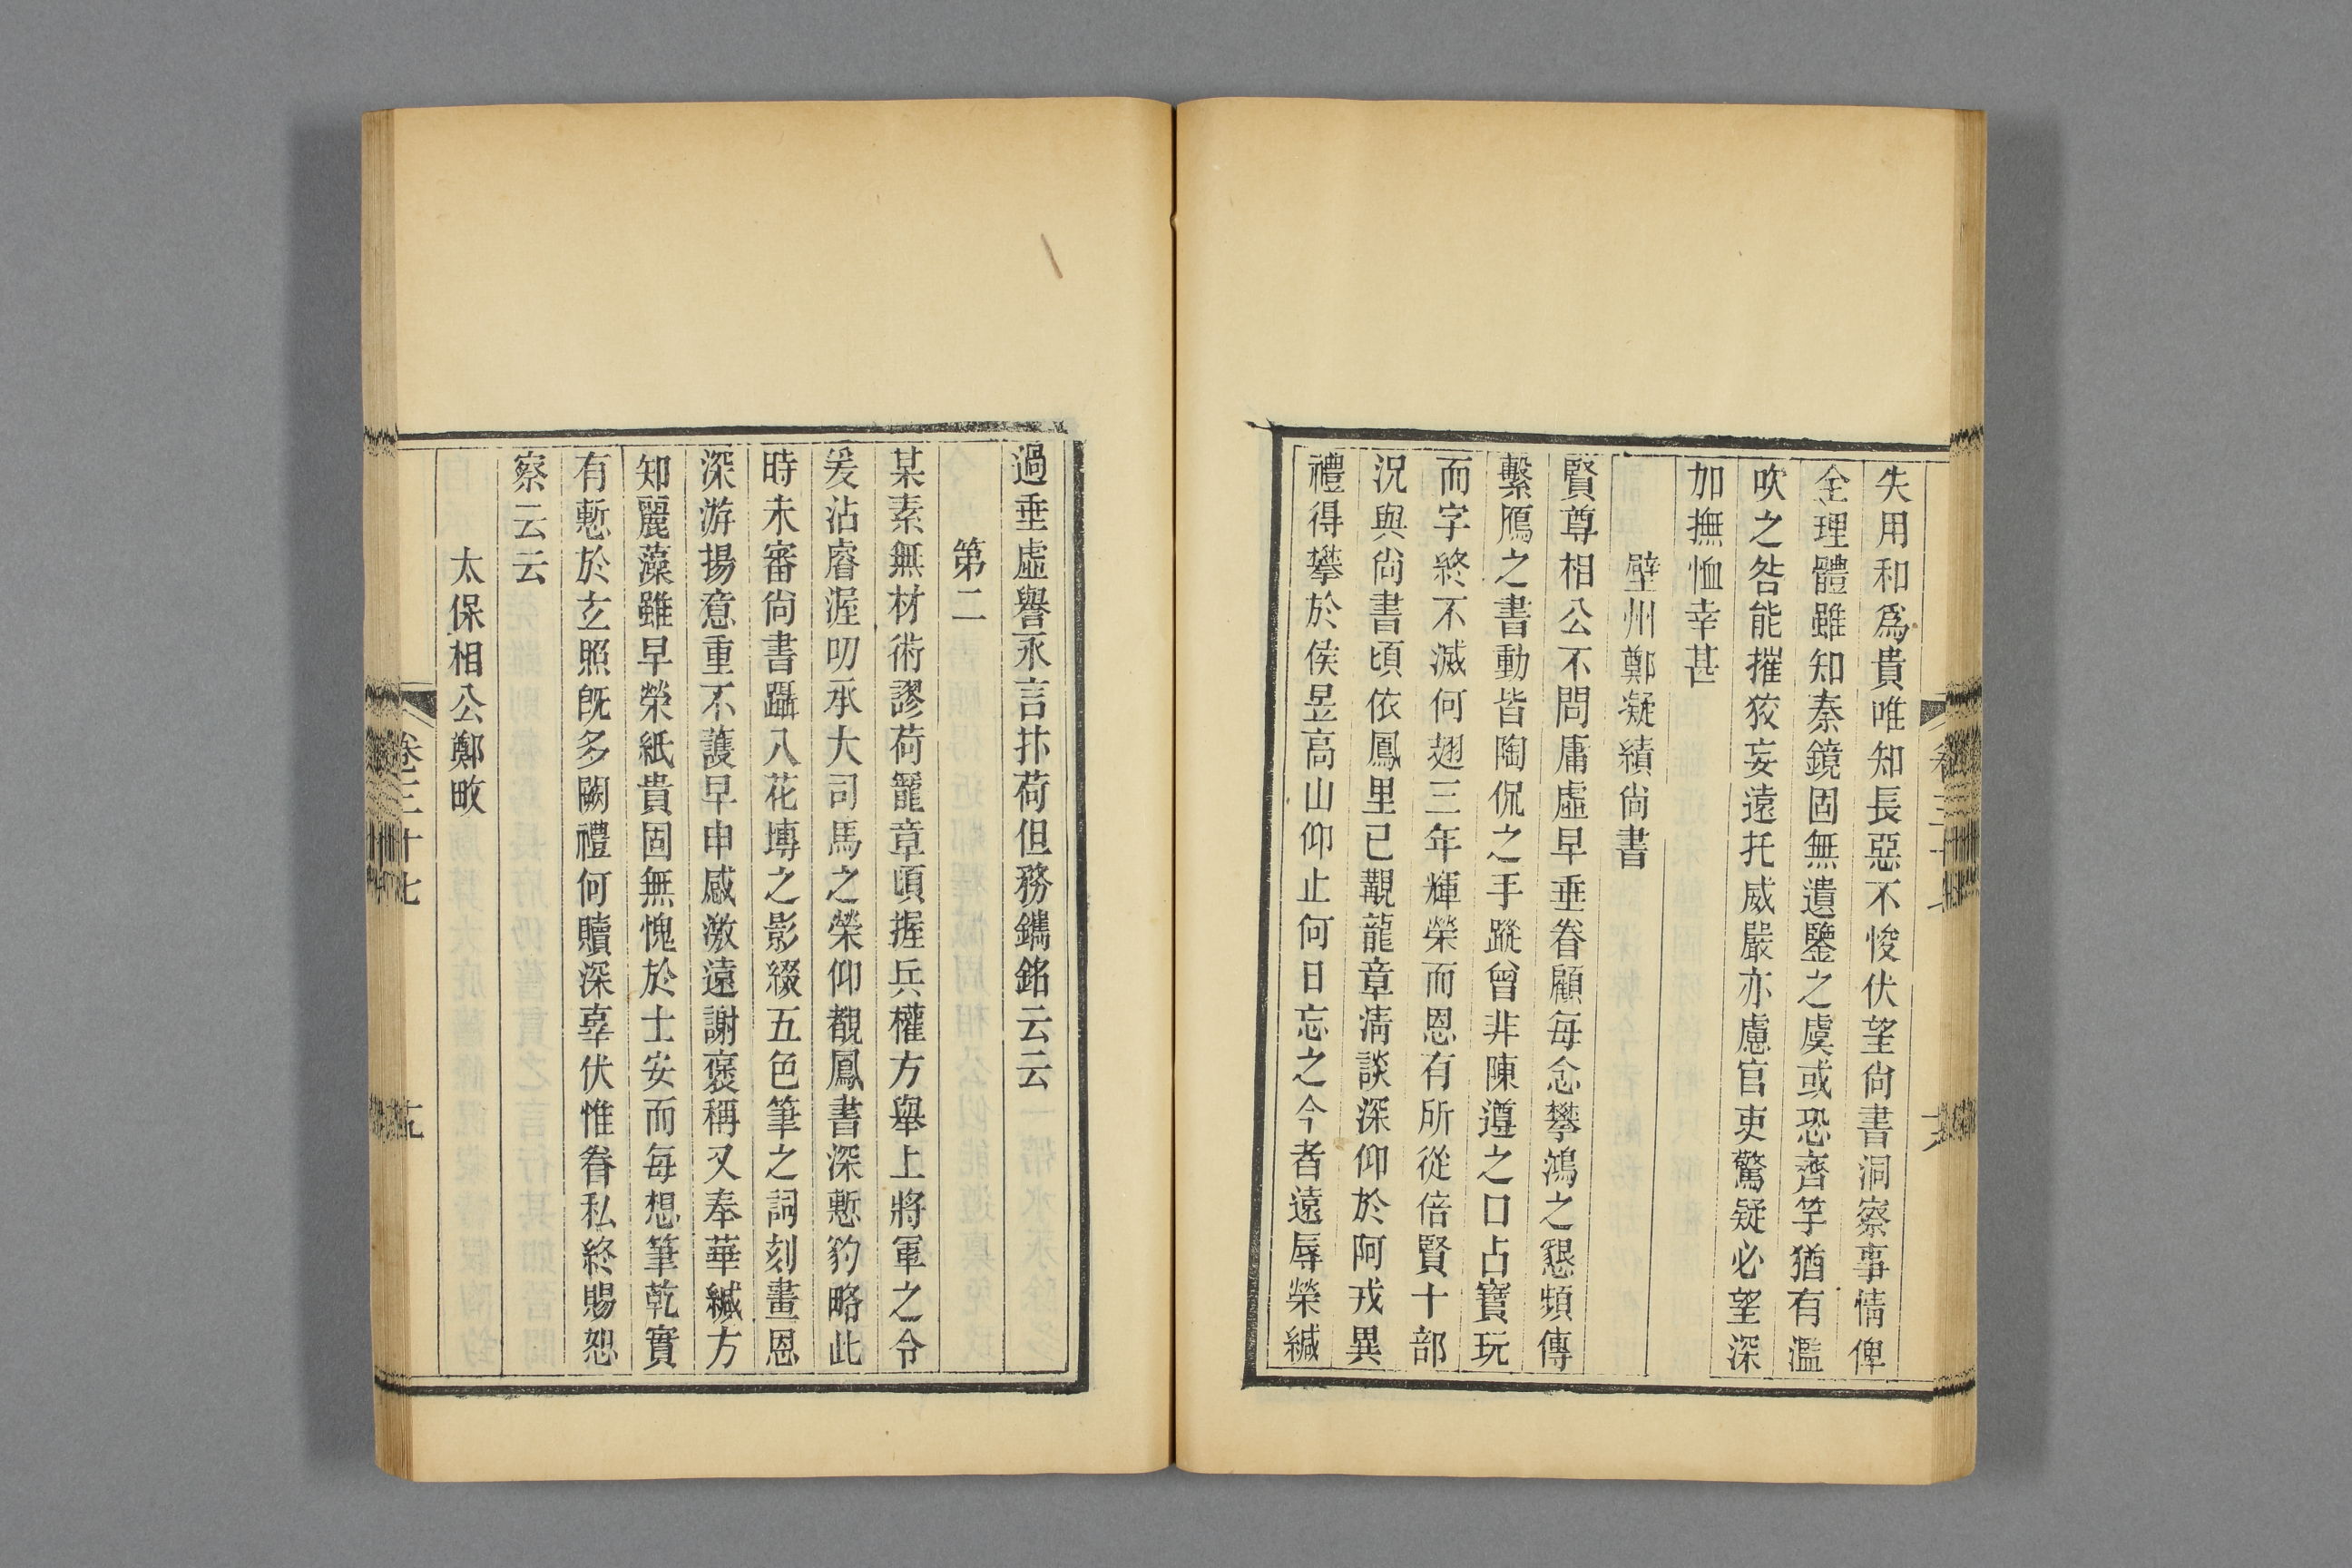 失用和爲貴唯知長惡不悛伏望尙書洞察事情俾
全理體雖知秦鏡固無遺鑒之虞或恐齊竽猶有濫
吹之咎能摧狡妄遠托威嚴亦慮官吏驚疑必望深
加撫恤幸甚
壁州鄭凝績尙書
賢尊相公不問庸虛早垂眷顧每念攀鴻之懇頻傳
繫鴈之書動皆陶侃之手蹤曾非陳遵之口占寶玩
而字終不滅何翅三年輝榮而恩有所從倍賢十部
況與尙書頃依鳳里已覩龍章淸談深仰於阿戎異
禮得攀於侯昱高山仰止何日忘之今者遠辱榮緘
過垂虛譽永言抃荷但務鐫銘云云
第二
某素無材術謬荷寵章頃握兵權方舉上將軍之令
爰沾睿渥叨承大司馬之榮仰覩鳳書深慙豹略此
時未審尙書躡八花塼之影綴五色筆之詞刻畫恩
深游揚意重不護早申感激遠謝襃稱又奉華緘方
知麗藻雖早榮紙貴固無愧於士安而每想筆乾實
有慙於玄照旣多闕禮何贖深辜伏惟眷私終賜恕
察云云
太保相公鄭畋
卷三十七